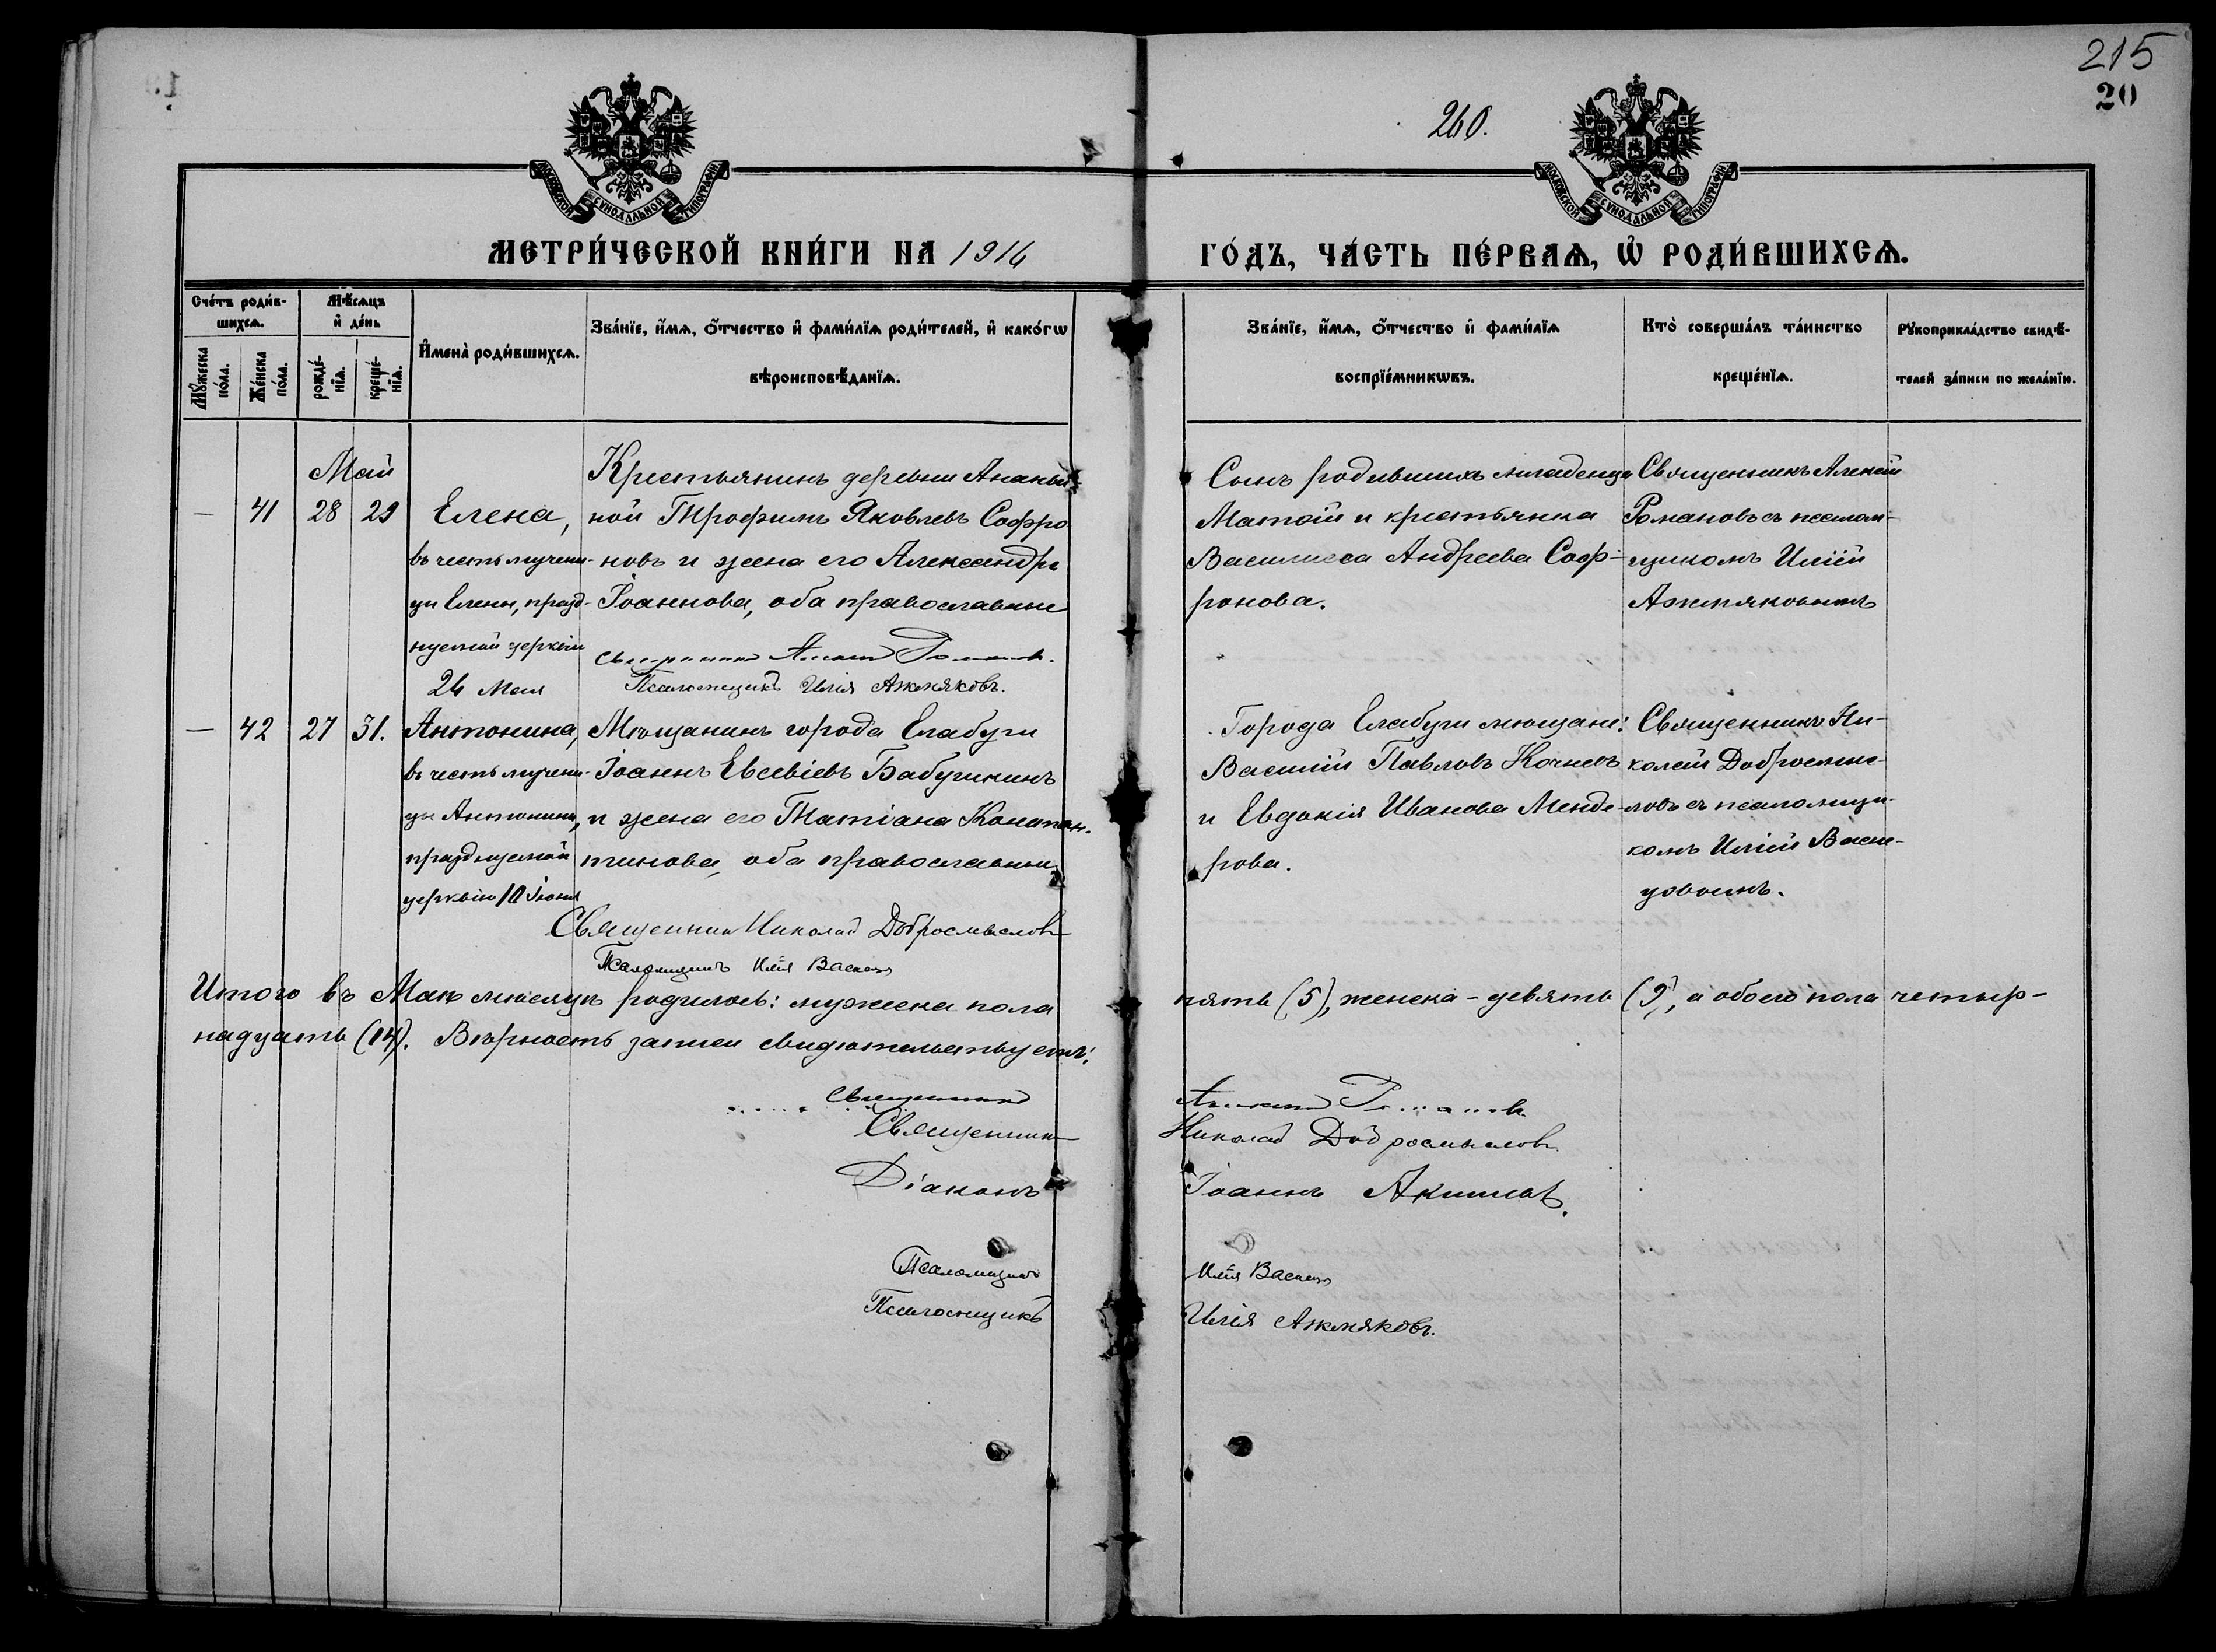 215
20
260.
МОСКОВСКОЙ СУНОДАЛЬНОЙ ТИПОГРАФІИ
МОСКОВСКОЙ СУНОДАЛЬНОЙ ТИПОГРАФІИ
МЕТРИ́ЧЕСКОЙ КНИ́ГИ НА 1914 ГО́ДЪ, ЧА́СТЬ ПЕ́РВАѦ, Ѡ҆ РОДИ́ВШИХСѦ.
Сче́тъ роди́в-
шихсѧ.
Мꙋ́жеска по́ла.
Же́нска по́ла.
Мѣ́сѧцъ
и҆ де́нь
рожде́-
нїѧ.
креще́-
нїѧ.
И҆мена̀ роди́вшихсѧ.
Зва́нїе, и҆́мѧ, ѻ҆́тчество и҆ фами́лїѧ роди́телей, и҆ како́гѡ
вѣроисповѣ́данїѧ.
Зва́нїе, и҆́мѧ, ѻ҆́тчество и҆ фами́лїѧ
воспрїе́мникѡвъ.
Кто̀ соверша́лъ та́инство
креще́нїѧ.
Рꙋкоприкла́дство свидѣ́-
телей за́писи по жела́нїю.
Май
— 41 28 29
Елена,
въ честь мучени-
цы Елены, празд-
нуемой церквію
26 Мая
Крестьянинъ деревни Ананьи-
ной Трофимъ Яковлевъ Софро
новъ и жена его Александра
Іоаннова, оба православные
Священникъ Алексій Романовъ.
Псаломщикъ Илія Ажмяковъ.
Сынъ родившихъ младенца
Матѳій и крестьянка
Василисса Андреева Соф-
ронова.
Священникъ Алексій
Романовъ съ псалом-
щикомъ Иліей
Ажмяковымъ
— 42 27 31.
Антонина,
въ честь мучени-
цы Антонины,
празднуемой
церквію 10 Іюня
Мѣщанинъ города Елабуги
Іоаннъ Евсевіевъ Бабушкинъ
и жена его Татіана Констан-
тинова, оба православные
Священник Николай Добросмыслов
Псаломщикъ Илія
Города Елабуги мѣщане:
Василій Павловъ Кочневъ
и Евдокія Иванова Менде-
рова.
Священникъ Ни-
колай Добросмыс-
ловъ съ псаломщи-
комъ Иліей
Итого въ Маѣ мѣсяцѣ родилось: мужеска пола пять (5), женска – девять (9), а обоего пола четыр-
надцать (14). Вѣрность записи свидѣтельствуемъ:
Священникъ Алексій Романовъ
Священник Николай Добросмыслов
Діаконъ Іоаннъ Акишевъ.
Псаломщикъ Илія
Псаломщикъ Илія Ажмяковъ.